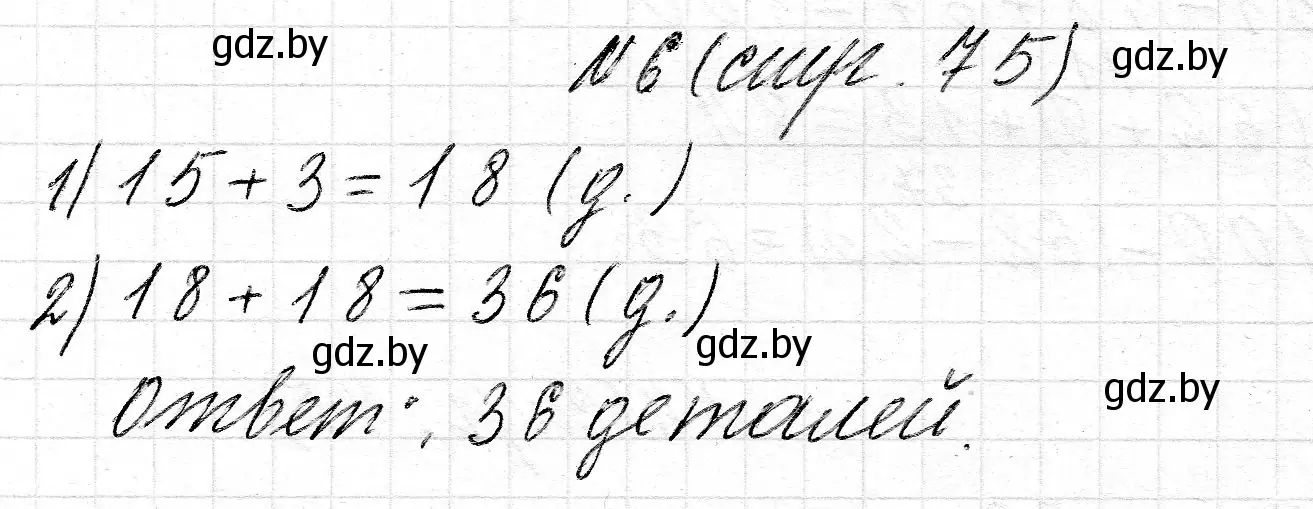 gdz.by
№ 6 (стр. 75)
gdz.by
1) 15 + 3 = 18 (д.)
2) 18 + 18 = 36 (д.)
gdz.by
gdz.by
Ответ: 36 деталей.
gdz.by